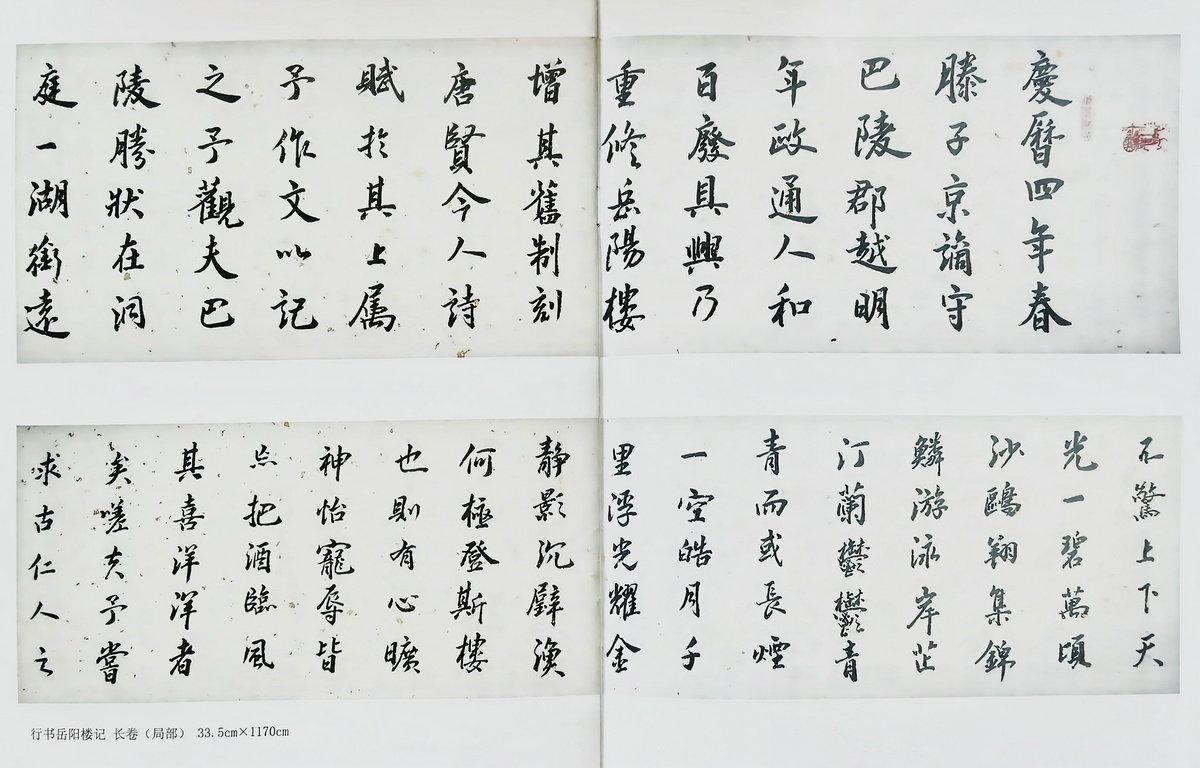 慶曆四年春
滕子京謫守
巴陵郡越明
年政通人和
百廢具興乃
重修岳陽樓
增其舊制刻
唐賢今人詩
賦於其上屬
予作文以記
之予觀夫巴
陵勝狀在洞
庭一湖銜遠
不驚上下天
光一碧萬頃
沙鷗翔集錦
鱗游泳岸芷
汀蘭鬱鬱青
青而或長煙
一空皓月千
里浮光耀金
靜影沉璧漁
何極登斯樓
也則有心曠
神怡寵辱皆
忘把酒臨風
其喜洋洋者
矣嗟夫予嘗
求古仁人之
行书岳阳楼记 长卷（局部） 33.5cm×1170cm